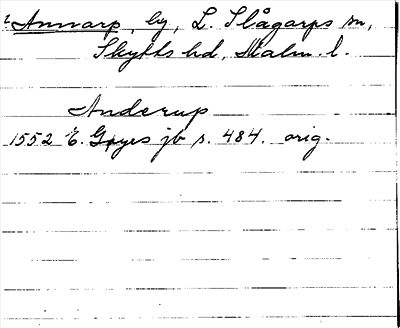 Annarp, by, L. Slågarps sn,
Skytts hd, Malm. l.
Anderup
1552 E. Gøyes jb s. 484. orig.